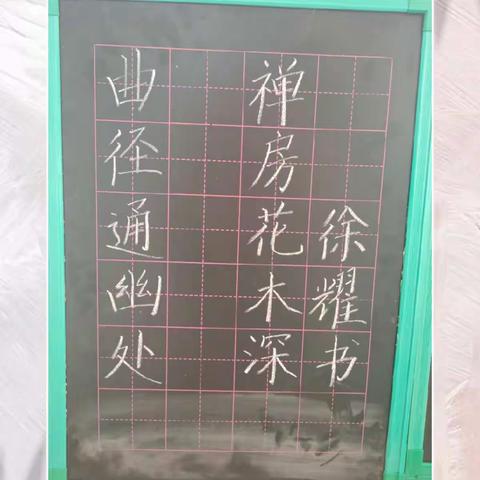 曲径通幽处
禅房花木深
徐耀书